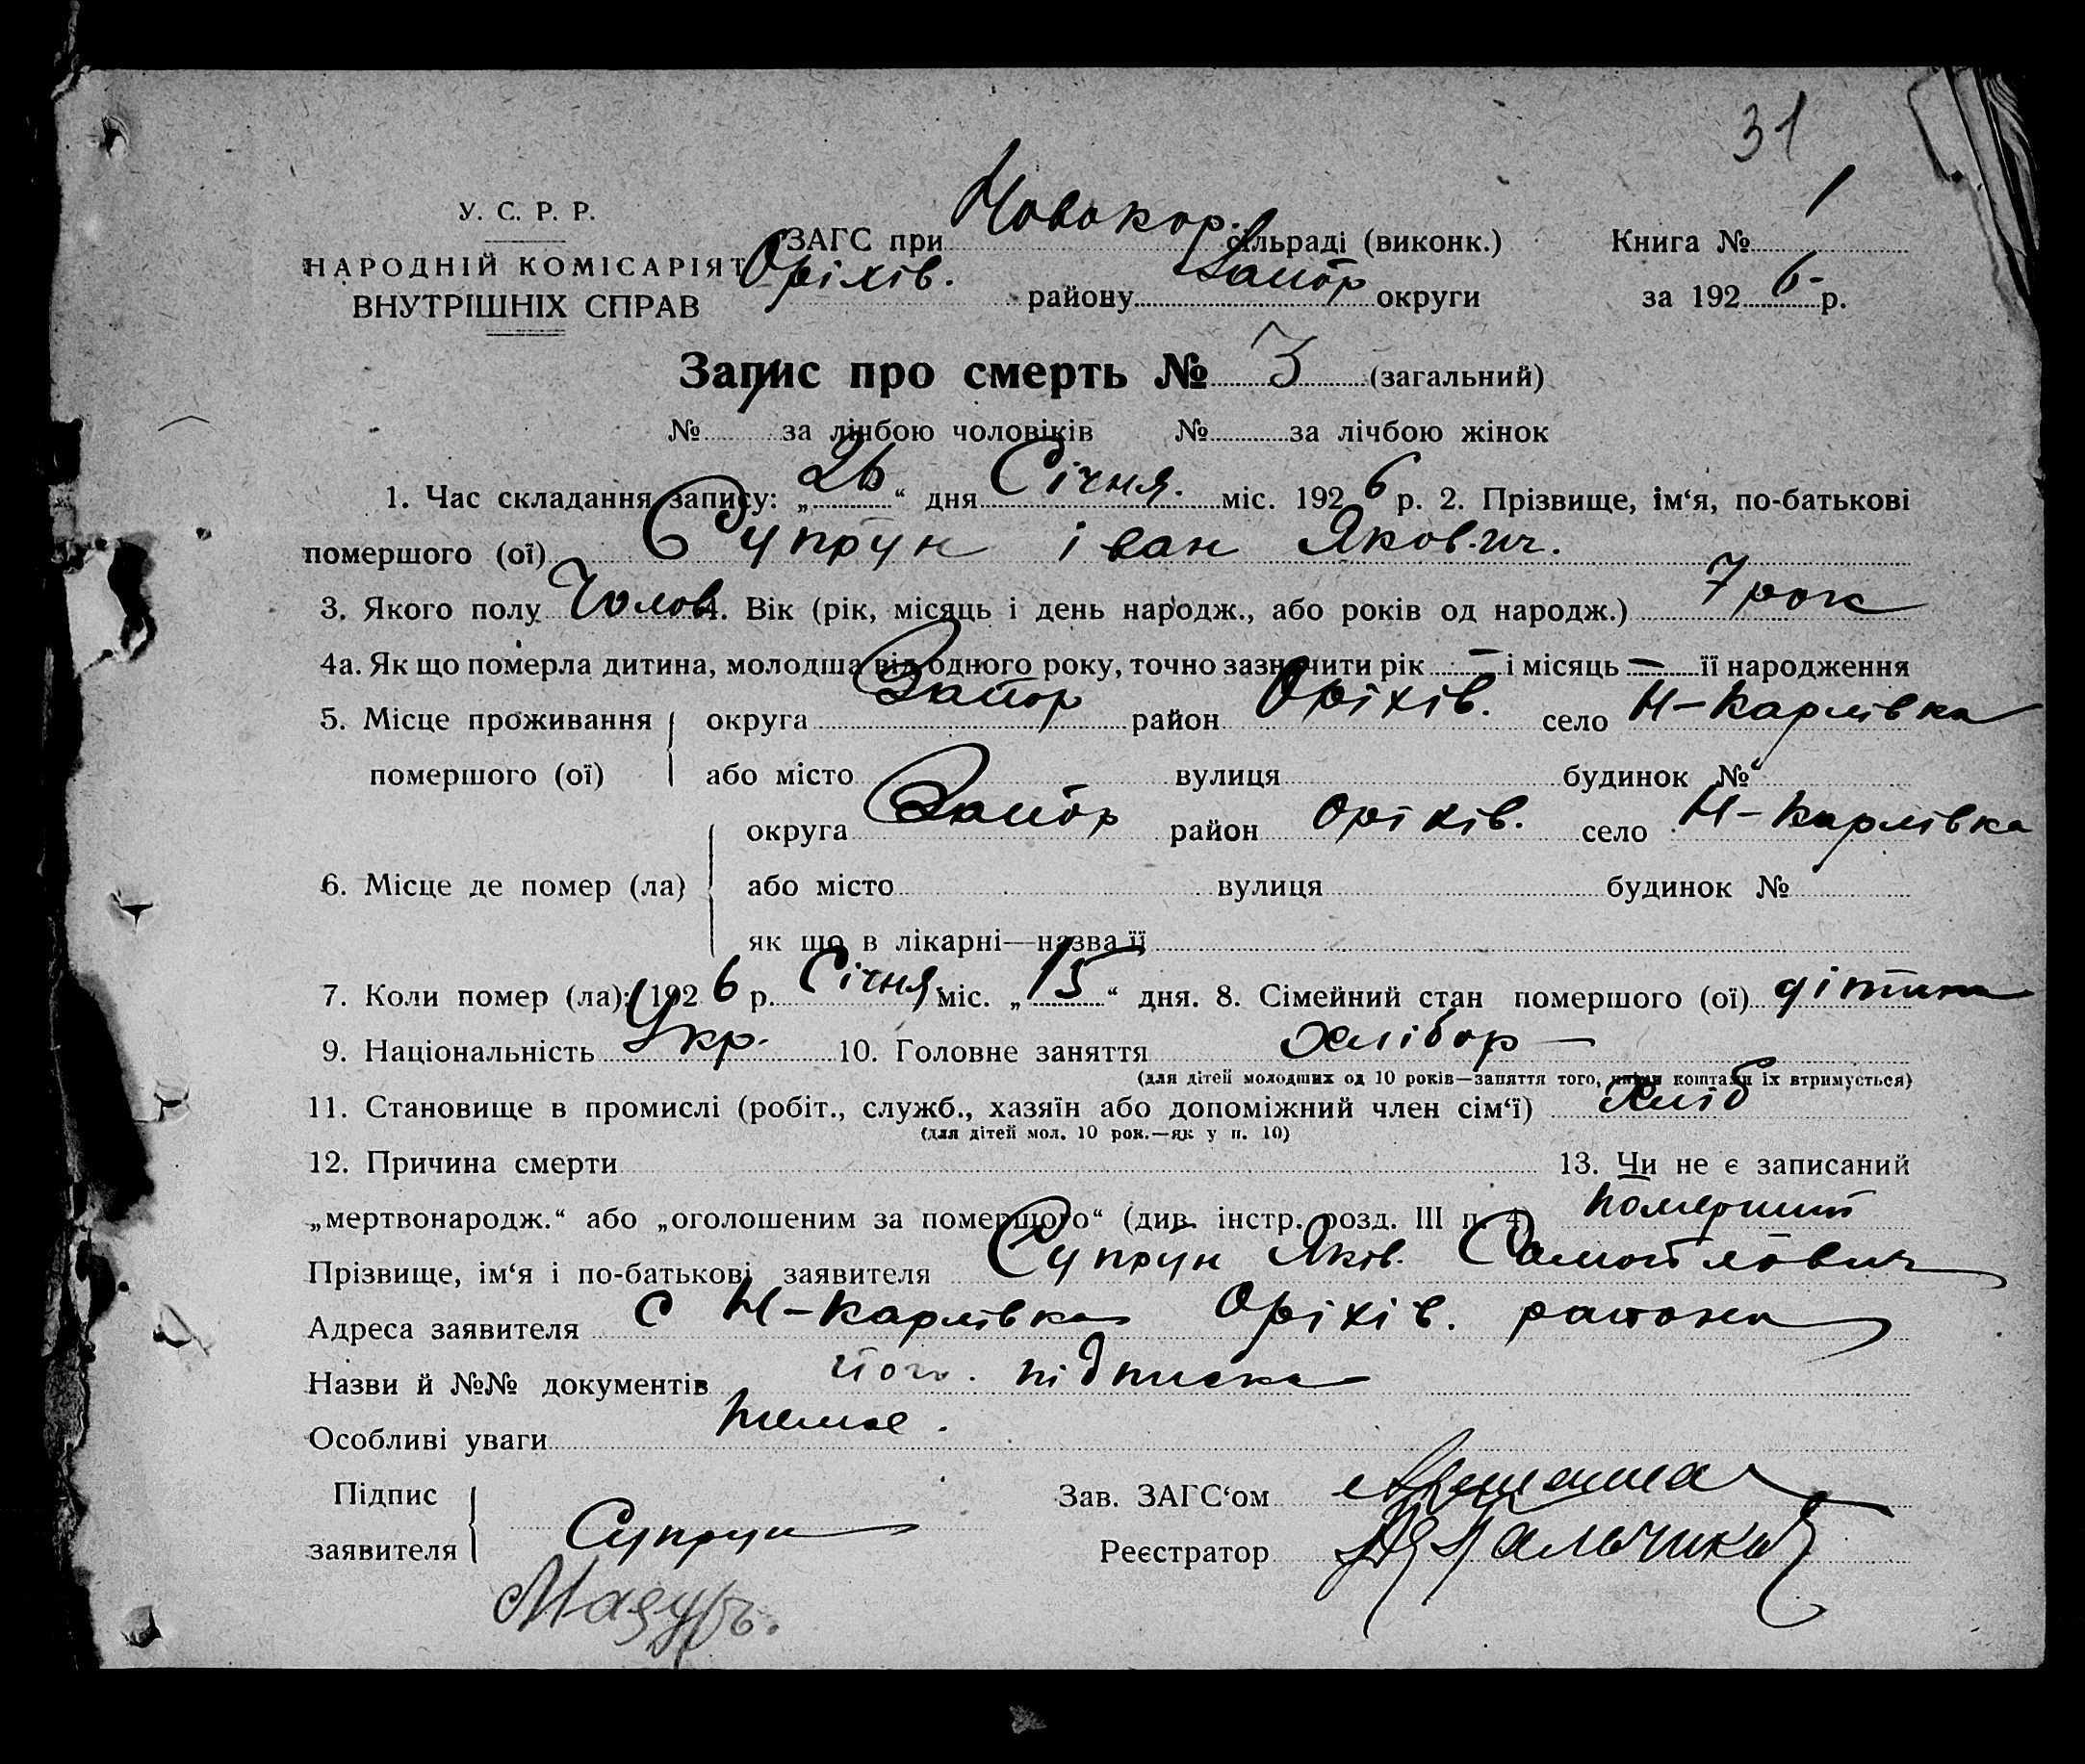 31
У. С. Р. Р.
НАРОДНІЙ КОМІСАРІЯТ
ВНУТРІШНІХ СПРАВ
ЗАГС при Новокар. сільраді (виконк.)
Оріхів. району Запор округи
Книга № 1
за 1926 р.
Запис про смерть № 3 (загальний)
№ 1 за лічбою чоловіків № за лічбою жінок
1. Час складання запису: „26“ дня Січня. міс. 1926 р. 2. Прізвище, ім‘я, по-батькові
помершого (ої) Супрун іван Яков-ич.
3. Якого полу Чолов 4. Вік (рік, місяць і день народж., або років од народж.) 7 рок
4а. Як що померла дитина, молодша від одного року, точно зазначити рік — і місяць — її народження
5. Місце проживання округа Запор район Оріхів. село Н-Карлівка
помершого (ої) або місто вулиця будинок №
округа Запор район Оріхів. село Н-Карлівка
6. Місце де помер (ла) або місто вулиця будинок №
як що в лікарні—назва її
7. Коли помер (ла): 1926 р. Січня міс. „15“ дня. 8. Сімейний стан помершого (ої) дітина
9. Національність Укр. 10. Головне заняття Хлібор —
(для дітей молодших од 10 років—заняття того, чиїми коштами їх втримується)
11. Становище в промислі (робіт., служб., хазяїн або допоміжний член сім‘ї) Хліб
(для дітей мол. 10 рок.—як у п. 10)
12. Причина смерти 13. Чи не є записаний
„мертвонародж.“ або „оголошеним за помершого“ (див. інстр. розд. III п. 4) померший
Прізвище, ім‘я і по-батькові заявителя Супрун Яків. Самойлович
Адреса заявителя с Н-Карлівка Оріхів. району
Назви й №№ документів його. підписка
Особливі уваги немае.
Підпис
заявителя Супрун
Зав. ЗАГС‘ом
Реєстратор
Мазуръ.